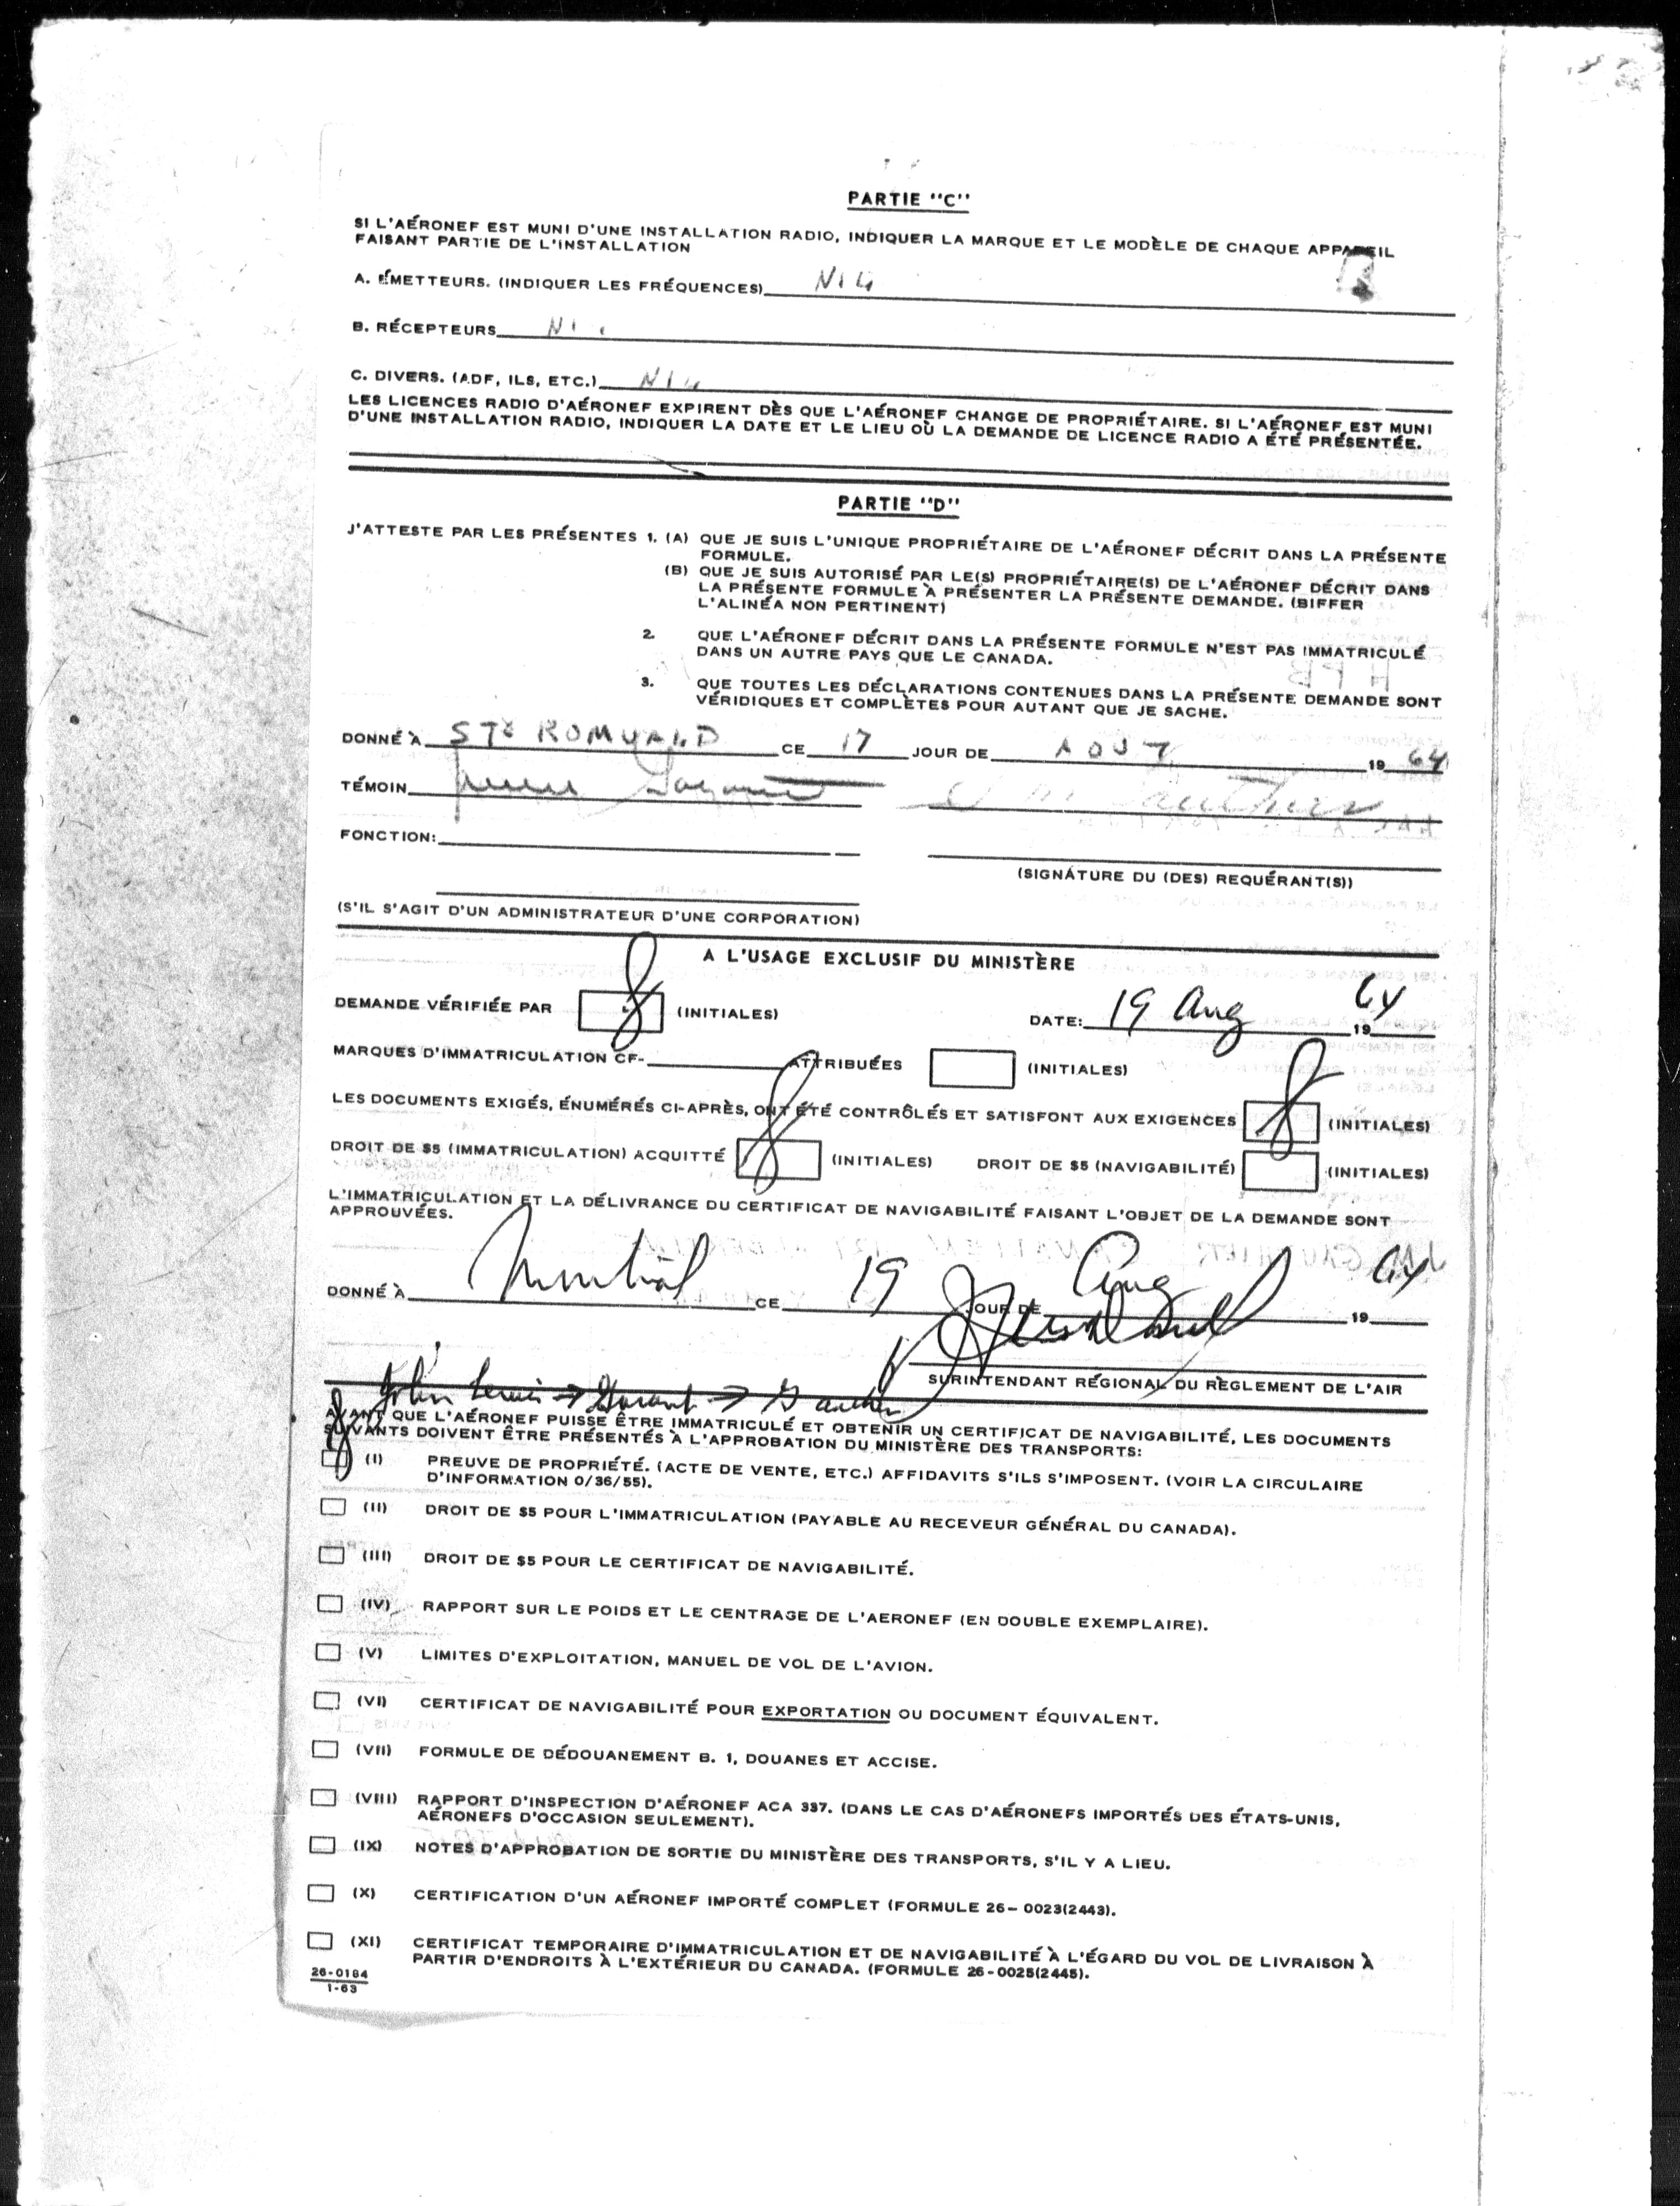 PARTIE "C"
SI L'AÉRONEF EST MUNI D'UNE INSTALLATION RADIO, INDIQUER LA MARQUE ET LE MODÈLE DE CHAQUE APPAREIL
FAISANT PARTIE DE L'INSTALLATION
A. ÉMETTEURS. (INDIQUER LES FRÉQUENCES) NIL
B. RÉCEPTEURS
C. DIVERS. (ADF, ILS, ETC.) NIL
LES LICENCES RADIO D'AÉRONEF EXPIRENT DÈS QUE L'AÉRONEF CHANGE DE PROPRIÉTAIRE. SI L'AÉRONEF EST MUNI
D'UNE INSTALLATION RADIO, INDIQUER LA DATE ET LE LIEU OÙ LA DEMANDE DE LICENCE RADIO A ÉTÉ PRÉSENTÉE.
PARTIE "D"
J'ATTESTE PAR LES PRÉSENTES 1. (A) QUE JE SUIS L'UNIQUE PROPRIÉTAIRE DE L'AÉRONEF DÉCRIT DANS LA PRÉSENTE
FORMULE.
(B) QUE JE SUIS AUTORISÉ PAR LE(S) PROPRIÉTAIRE(S) DE L'AÉRONEF DÉCRIT DANS
LA PRÉSENTE FORMULE À PRÉSENTER LA PRÉSENTE DEMANDE. (BIFFER
L'ALINÉA NON PERTINENT)
2. QUE L'AÉRONEF DÉCRIT DANS LA PRÉSENTE FORMULE N'EST PAS IMMATRICULÉ
DANS UN AUTRE PAYS QUE LE CANADA.
3. QUE TOUTES LES DÉCLARATIONS CONTENUES DANS LA PRÉSENTE DEMANDE SONT
VÉRIDIQUES ET COMPLÈTES POUR AUTANT QUE JE SACHE.
DONNÉ À ST ROMUALD CE 17 JOUR DE AOUT 19 64
TÉMOIN
FONCTION:
(SIGNATURE DU (DES) REQUÉRANT(S))
(S'IL S'AGIT D'UN ADMINISTRATEUR D'UNE CORPORATION)
A L'USAGE EXCLUSIF DU MINISTÈRE
DEMANDE VÉRIFIÉE PAR (INITIALES) DATE: 19 Aug 19 64
MARQUES D'IMMATRICULATION CF- ATTRIBUÉES (INITIALES)
LES DOCUMENTS EXIGÉS, ÉNUMÉRÉS CI-APRÈS, ONT ÉTÉ CONTRÔLÉS ET SATISFONT AUX EXIGENCES (INITIALES)
DROIT DE $5 (IMMATRICULATION) ACQUITTÉ (INITIALES) DROIT DE $5 (NAVIGABILITÉ) (INITIALES)
L'IMMATRICULATION ET LA DÉLIVRANCE DU CERTIFICAT DE NAVIGABILITÉ FAISANT L'OBJET DE LA DEMANDE SONT
APPROUVÉES.
DONNÉ À Montréal CE 19 JOUR DE Aug 19 64
SURINTENDANT RÉGIONAL DU RÈGLEMENT DE L'AIR
John
AVANT QUE L'AÉRONEF PUISSE ÊTRE IMMATRICULÉ ET OBTENIR UN CERTIFICAT DE NAVIGABILITÉ, LES DOCUMENTS
SUIVANTS DOIVENT ÊTRE PRÉSENTÉS À L'APPROBATION DU MINISTÈRE DES TRANSPORTS:
(I) PREUVE DE PROPRIÉTÉ. (ACTE DE VENTE, ETC.) AFFIDAVITS S'ILS S'IMPOSENT. (VOIR LA CIRCULAIRE
D'INFORMATION 0/36/55).
(II) DROIT DE $5 POUR L'IMMATRICULATION (PAYABLE AU RECEVEUR GÉNÉRAL DU CANADA).
(III) DROIT DE $5 POUR LE CERTIFICAT DE NAVIGABILITÉ.
(IV) RAPPORT SUR LE POIDS ET LE CENTRAGE DE L'AERONEF (EN DOUBLE EXEMPLAIRE).
(V) LIMITES D'EXPLOITATION, MANUEL DE VOL DE L'AVION.
(VI) CERTIFICAT DE NAVIGABILITÉ POUR EXPORTATION OU DOCUMENT ÉQUIVALENT.
(VII) FORMULE DE DÉDOUANEMENT B. 1, DOUANES ET ACCISE.
(VIII) RAPPORT D'INSPECTION D'AÉRONEF ACA 337. (DANS LE CAS D'AÉRONEFS IMPORTÉS DES ÉTATS-UNIS,
AÉRONEFS D'OCCASION SEULEMENT).
(IX) NOTES D'APPROBATION DE SORTIE DU MINISTÈRE DES TRANSPORTS, S'IL Y A LIEU.
(X) CERTIFICATION D'UN AÉRONEF IMPORTÉ COMPLET (FORMULE 26-0023(2443).
(XI) CERTIFICAT TEMPORAIRE D'IMMATRICULATION ET DE NAVIGABILITÉ À L'ÉGARD DU VOL DE LIVRAISON À
PARTIR D'ENDROITS À L'EXTÉRIEUR DU CANADA. (FORMULE 26-0025(2445).
26-0184
1-63